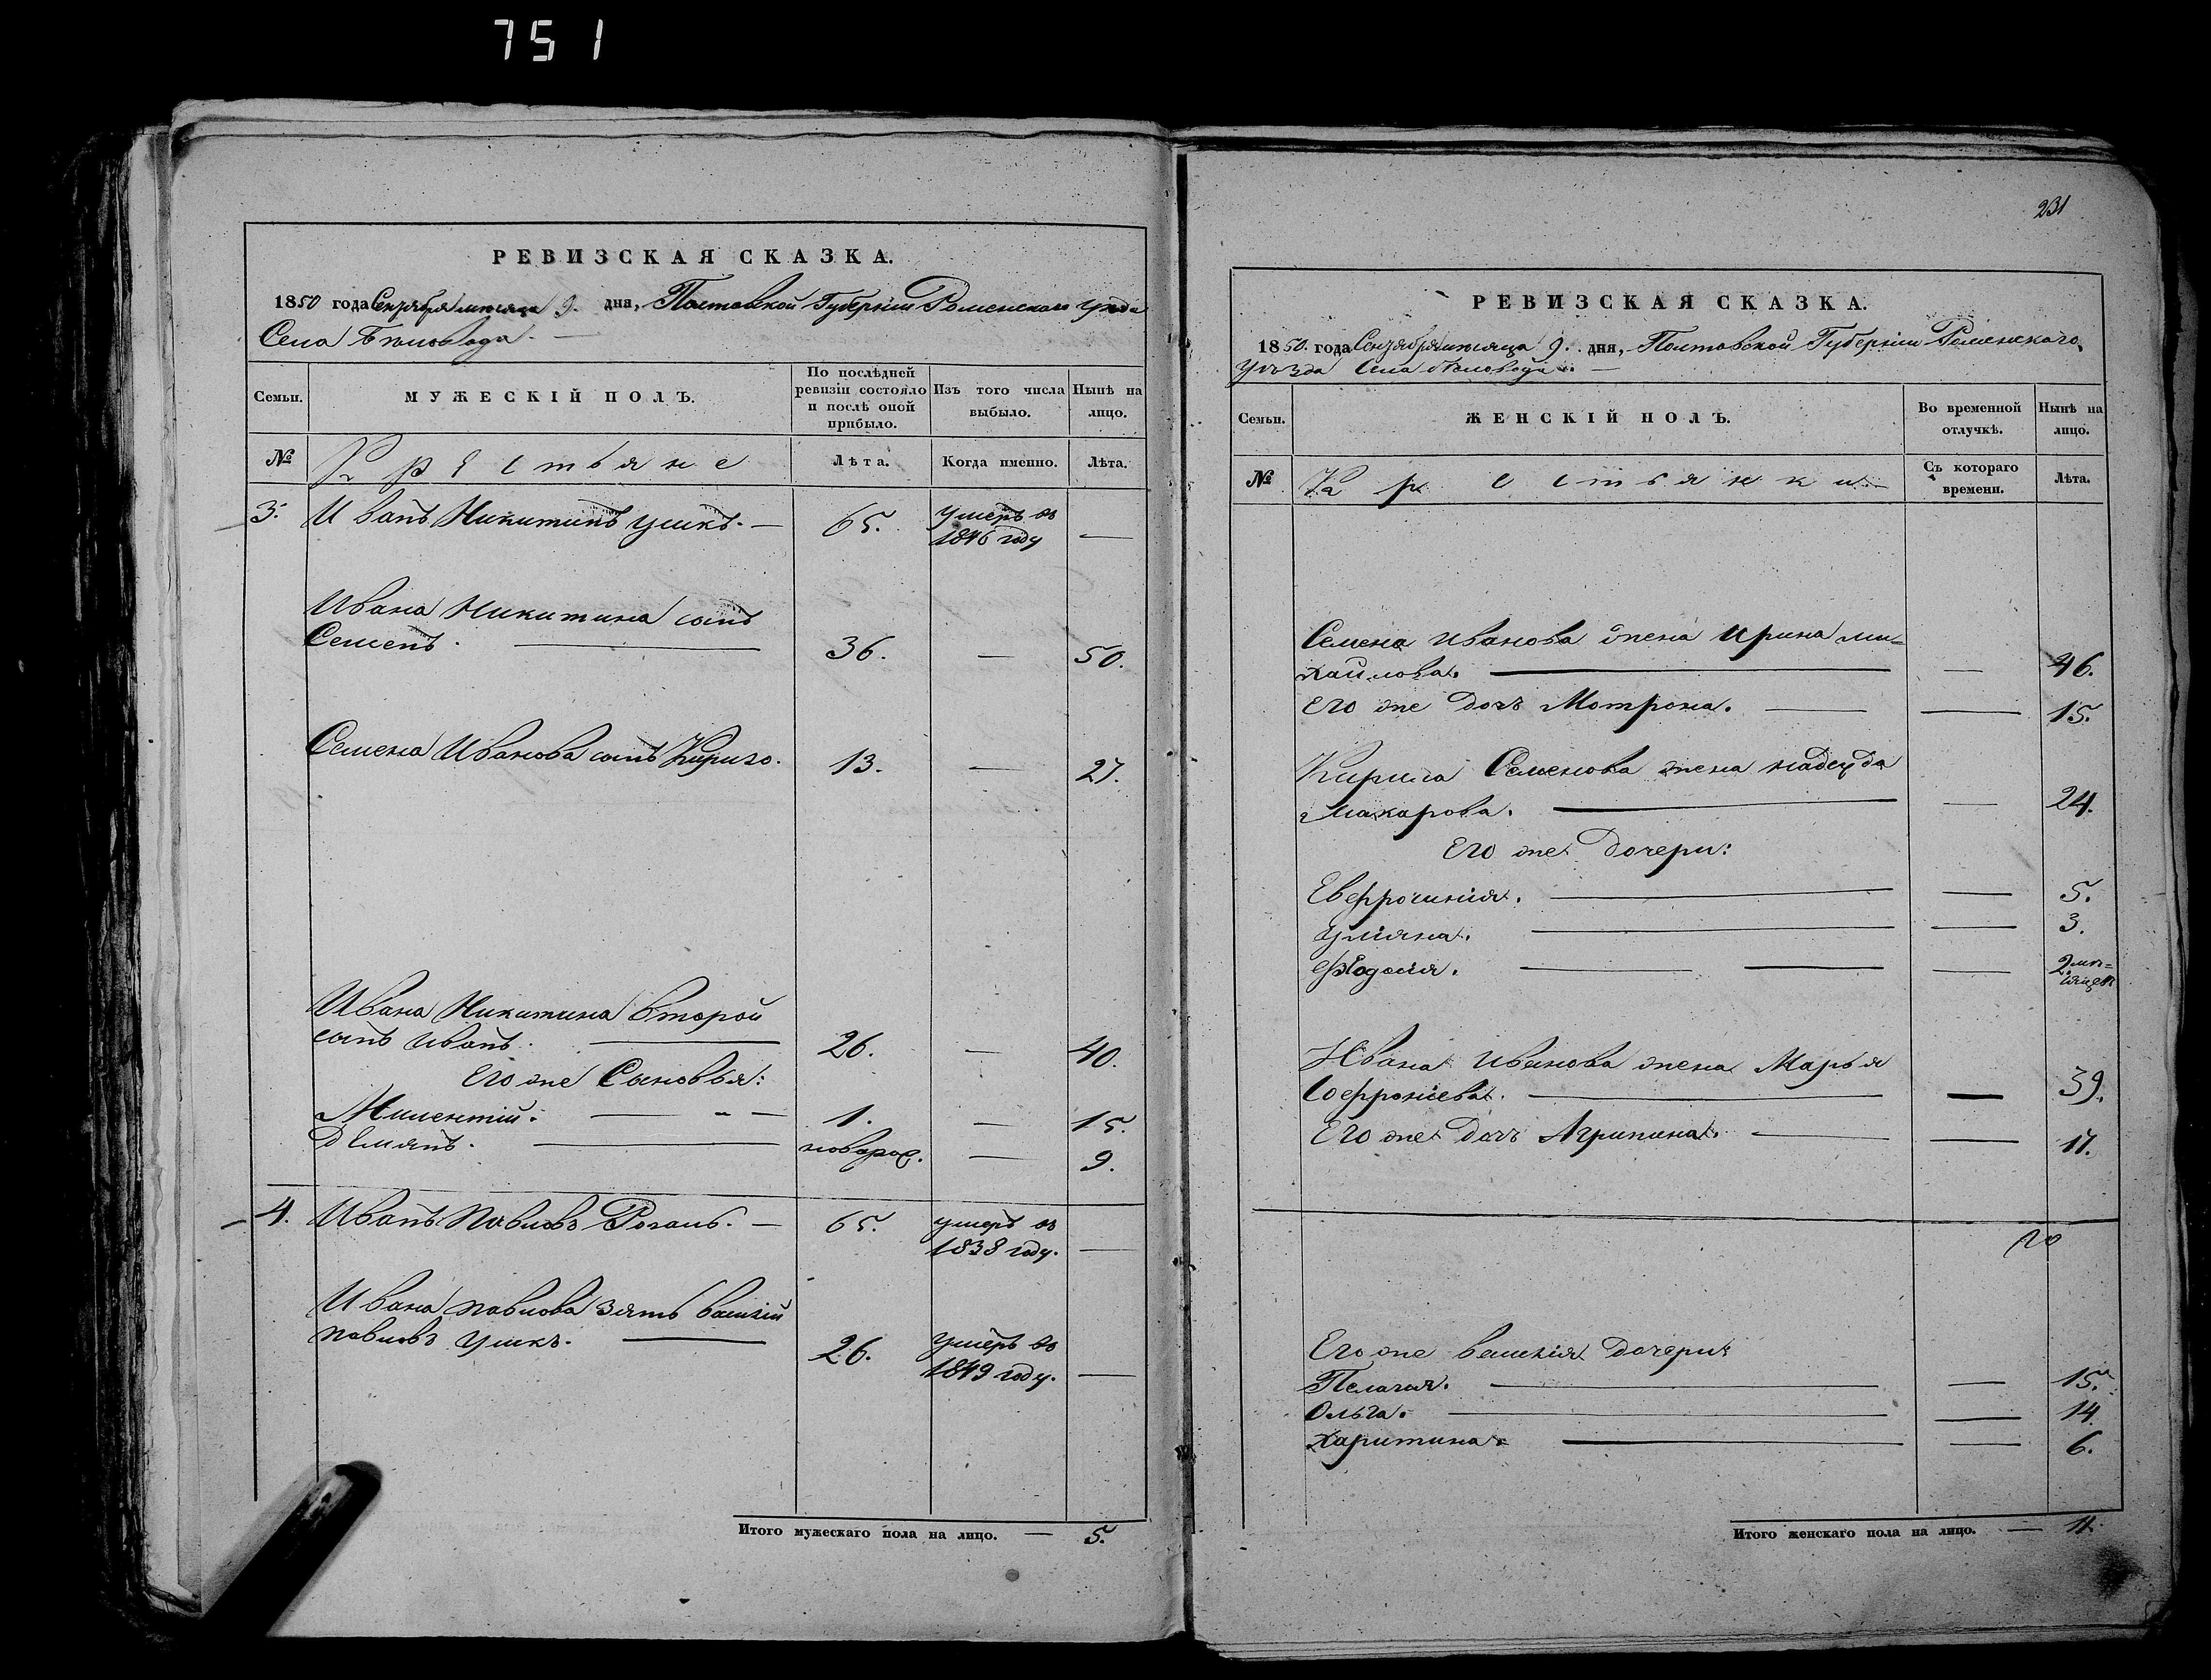 751
РЕВИЗСКАЯ СКАЗКА.
1850 года Сентября месяца 9. дня, Полтавской Губерніи Роменского уезда
Села Беловода.
Семьи.
МУЖЕСКІЙ ПОЛЪ.
По послѣдней ревизіи состояло и послѣ оной прибыло.
Изъ того числа выбыло.
Нынѣ на лицо.
№
Крестьяне
Лѣта.
Когда именно.
Лѣта.
3. Иванъ Никитинъ Ушкъ. — 65. умеръ въ
1846 году —
Ивана Никитина сынъ
Семенъ. — 36. — 50.
Семена Иванова сынъ Кирило. 13. — 27.
Ивана Никитина второй
сынъ Иванъ. — 26. — 40.
Его же Сыновья:
Милентій. — 1. — 15.
Демянъ. — новорож. — 9.
4. Иванъ Павловъ Рогаль. — 65. умеръ въ
1838 году. —
Ивана Павлова зять Василій
Павловъ Ушкъ. — 26. умеръ въ
1849 году. —
Итого мужескаго пола на лицо. — 5.
231
РЕВИЗСКАЯ СКАЗКА.
1850. года Сентября месяца 9. дня, Полтавской Губерніи Роменского
уѣзда Села Беловода. —
Семьи.
ЖЕНСКІЙ ПОЛЪ.
Во временной отлучкѣ.
Нынѣ на лицо.
№
Крестьянки
Съ котораго времени.
Лѣта.
Семена Иванова жена Ирина Ми-
хайлова. — — 46.
Его же дочь Мотрона. — — 15.
Кирила Семенова жена Надежда
Макарова. — — 24.
Его же дочери:
Евфросинія. — — 5.
Уліяна. — — 3.
Феодосія. — — — 2 ме-
сяцев
Ивана Иванова жена Марья
Софроніева. — — 39.
Его же дочь Агрипина. — — 17.
Его же Василія дочери:
Пелагия. — — 15.
Ольга. — — 14.
Харитина. — — 6.
Итого женскаго пола на лицо. — 11.